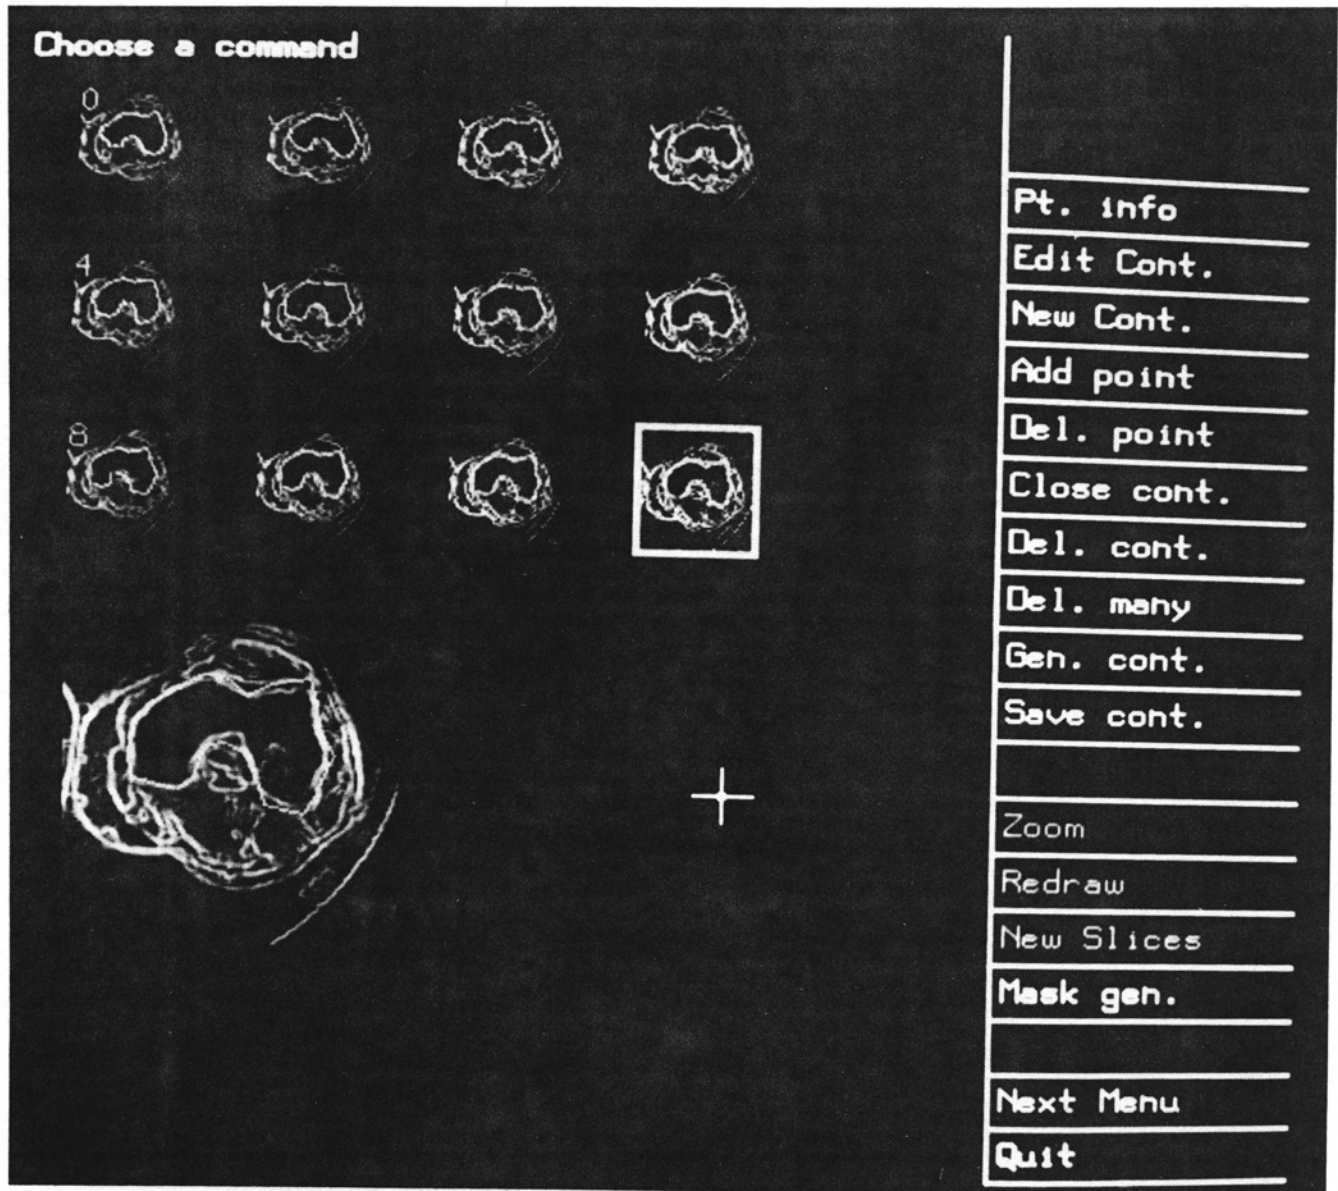 Choose a command
0
4
8
Pt. info
Edit Cont.
New Cont.
Add point
Del. point
Close cont.
Del. cont.
Del. many
Gen. cont.
Save cont.
Zoom
Redraw
New Slices
Mask gen.
Next Menu
Quit